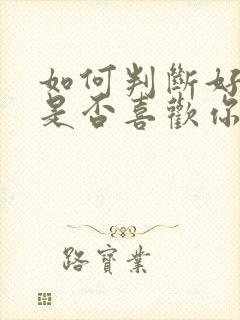 如何判斷好
是否喜歡你
路寶業